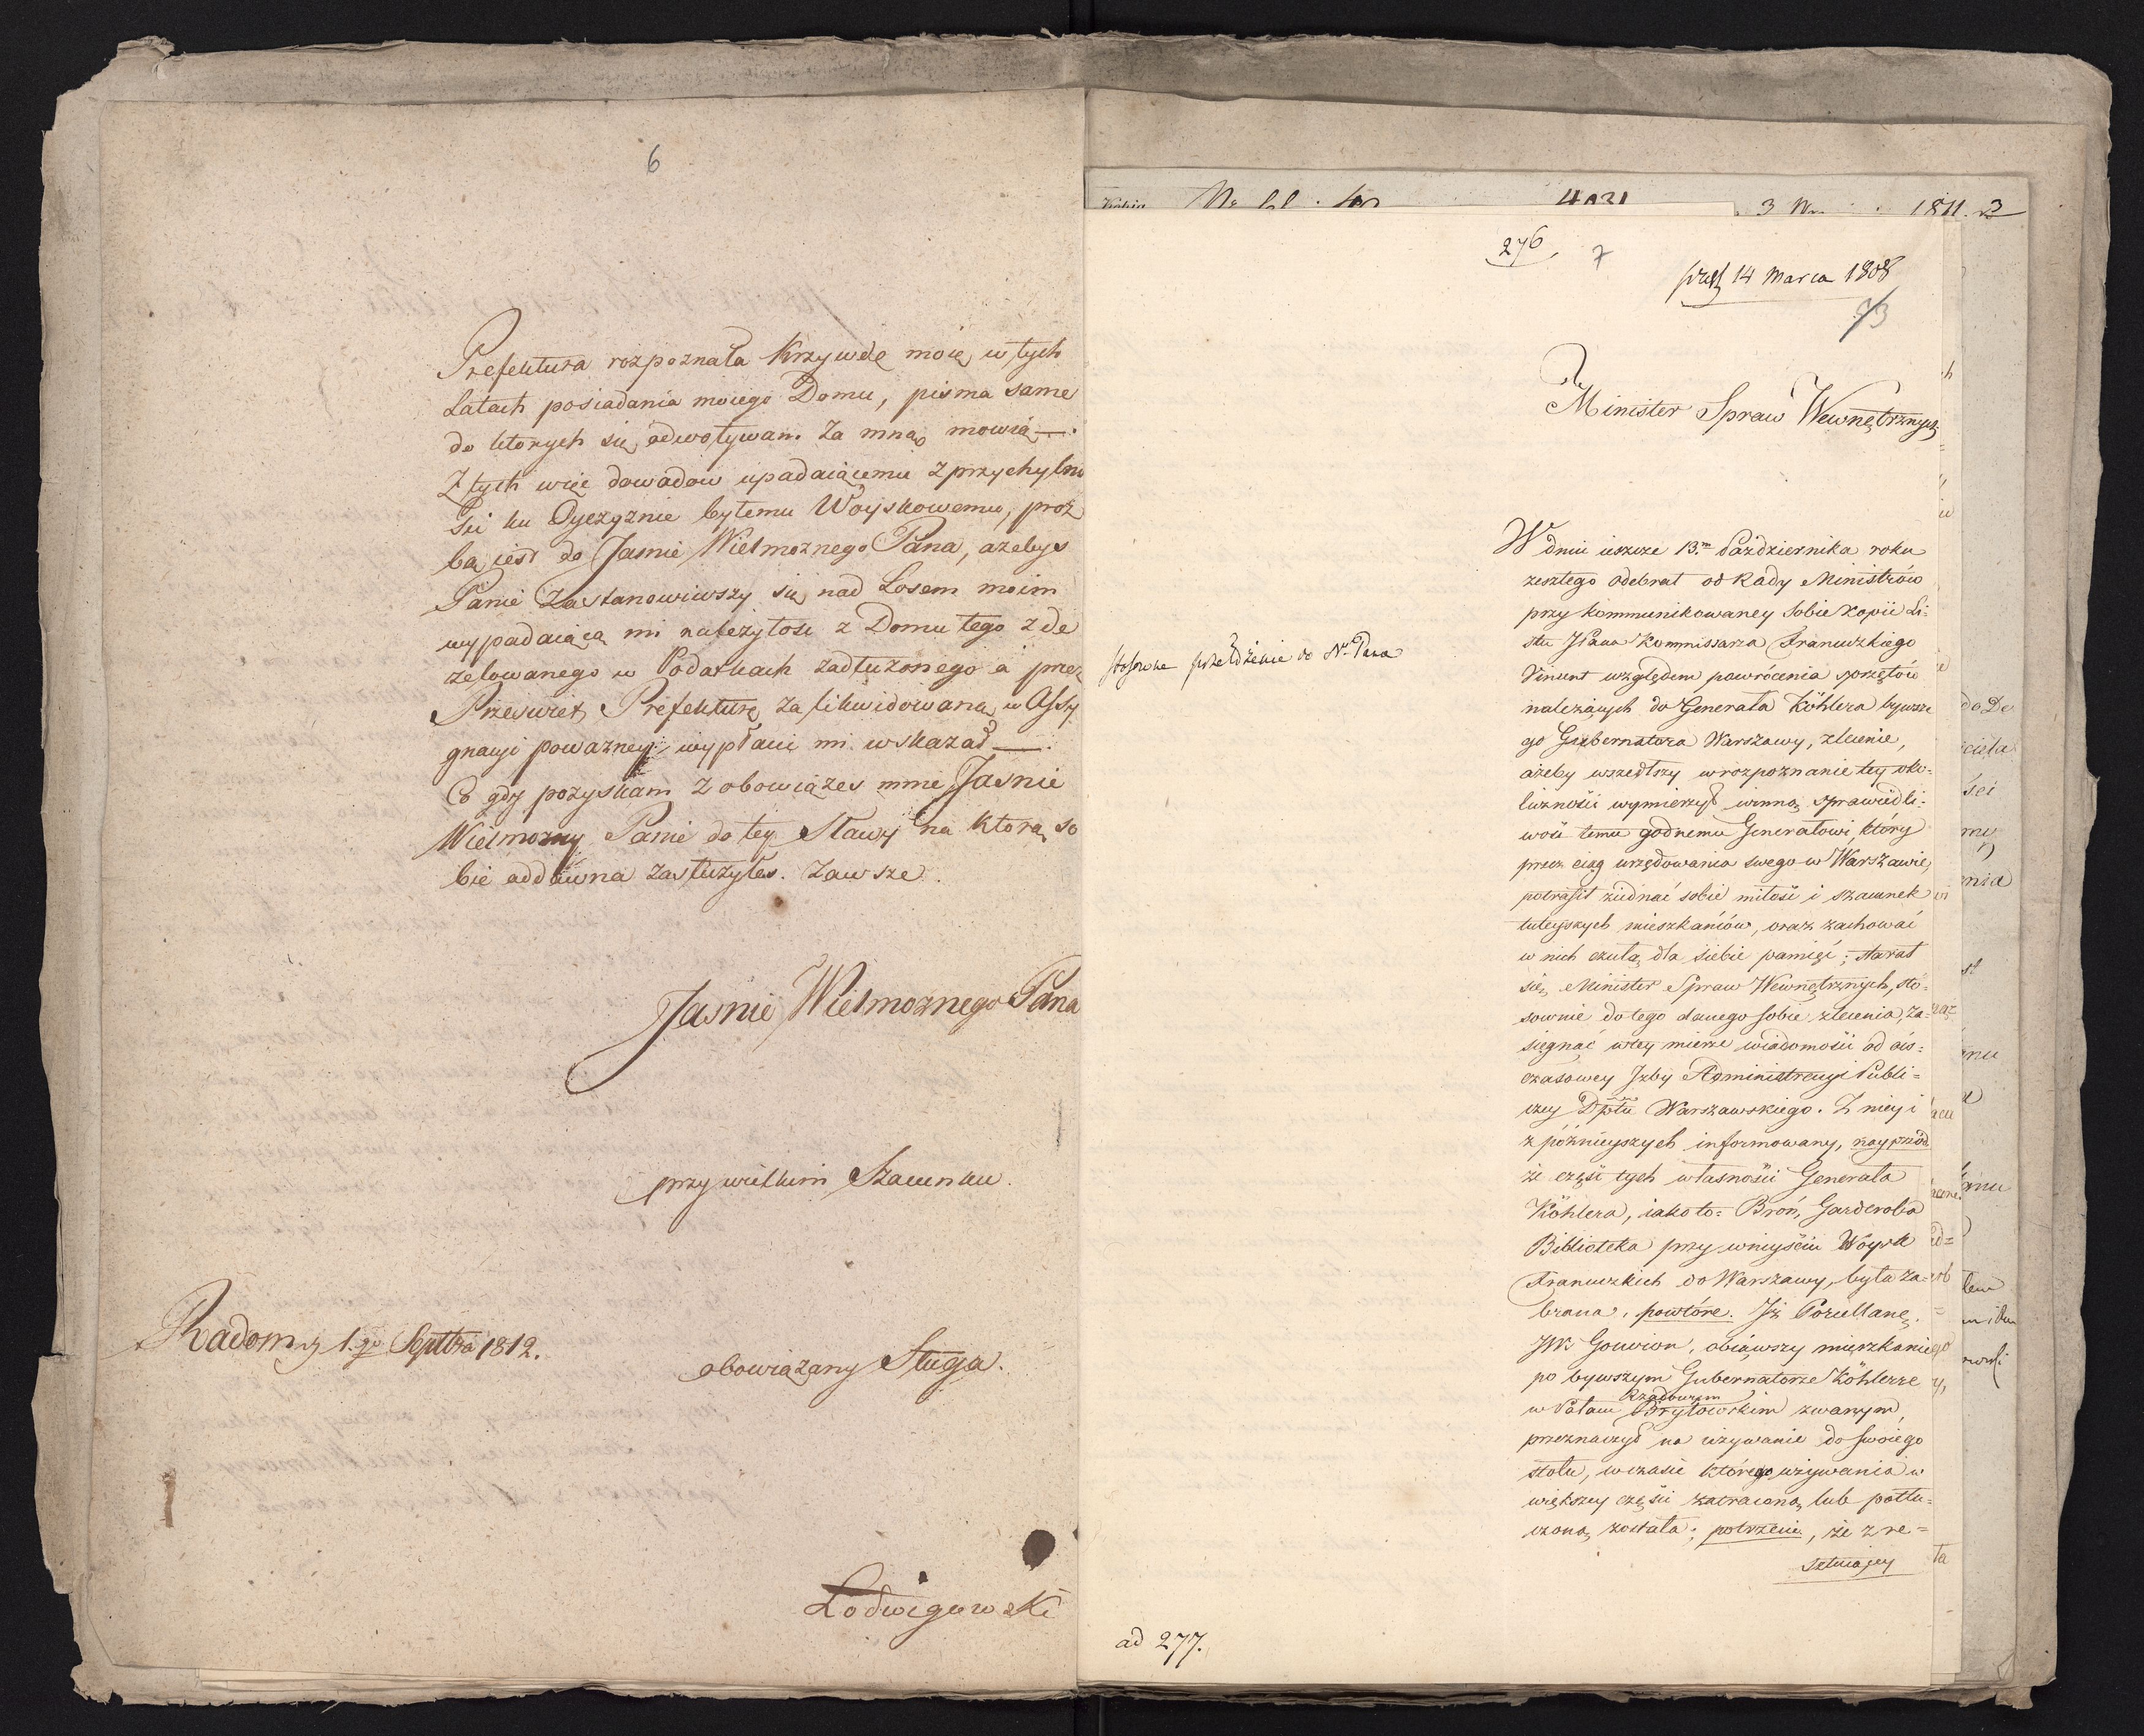 6
Prefektura rozpoznała Krzywdę moię w tych
Latach posiadania moiego Domu, pisma same
do ktorych się odwoływam za mną mowią —.
Z tych więc dowadow upadaiącemu z przychylno
Sci ku Oyczyznie bytemu Woyskowemu, proz
ba iest do Jasnie Wielmoznego Pana, azebys
Panie Zastanowiwszy się nad Losem moim
wypadaiącą mi nalezytosc z Domu tego zde
zelowanego w Podatkach zadłuzonego a przez
Przeswiet Prefekturę zalikwidowaną w Assy
gnacyi powazney wypłacic mi wskazał —.
Co gdy pozyskam zobowiązes mnie Jasnie
Wielmozny Panie do tey Sławy na ktorą so
bie addawna zasłuzyłes. Zawsze.
Jasnie Wielmoznego Pana
przy wielkim Szacunku.
Radom d 1.go Septbra 1812.
obowiązany Sługa.
Lodwigowski
4031
1811. 3
276. 7
14 Marca 1808
73
Minister Spraw Wewnętrznych
W dniu ieszcze 13.m Października roku
zeszłego odebrał od Rady Ministrów
przy kommunikowaney sobie kopii Li-
stu JPana Kommissarza Francuzkiego
Vincent względem powrócenia sprzętów
należących do Generała Köhlera bywsze
go Gubernatora Warszawy, zlecenie,
ażeby wszedłszy w rozpoznanie tey oko-
liczności wymierzył winną sprawiedli-
wość temu godnemu Generałowi, który
przez ciąg urzędowania swego w Warszawie,
potrafił ziednać sobie miłość i szacunek
tuteyszych mieszkańców, oraz zachować
w nich czułą dla siebie pamięć; starał
się Minister Spraw Wewnętrznych, sto-
sownie do tego danego sobie zlecenia, za-
sięgnąć w tey mierze wiadomości od ów-
czasowey Izby Administracyi Publi-
czney Dptu Warszawskiego. Z niey i
z pózniejszych informowany, nayprzód
że część tych własności Generała
Köhlera, iako to= Broń, Garderoba
Biblioteka przy wniyściu Woysk
Francuzkich do Warszawy, była za-
brana, powtóre. Iż Porcellanę.
JW. Gouvion, obiąwszy mięszkanie
po bywszym Gubernatorze Köhlerze
Rządowym
w Pałacu Brylowskim zwanym,
przeznaczył na używanie do swoiego
stołu, w czasie którego używania w
większey części zatraconą lub potłu-
czoną została; potrzecie, że z re-
sztuiącey
stosowne do N. Pana
ad 277.